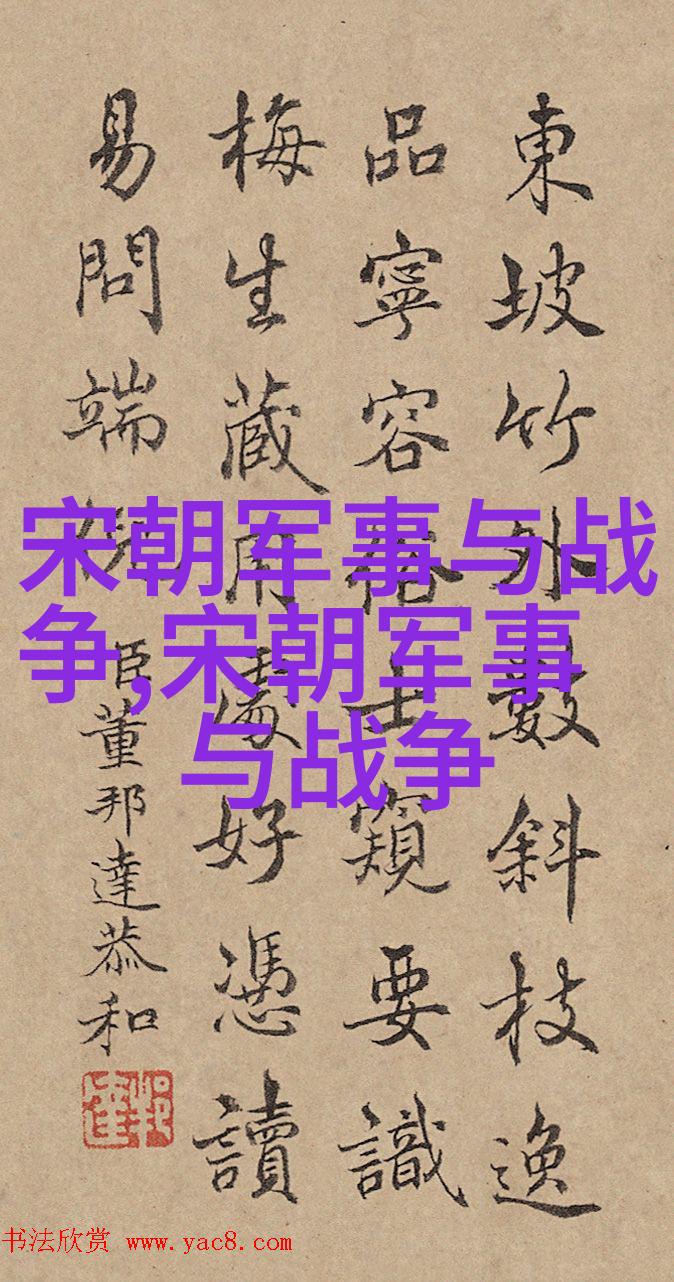 東坡竹外數斜枝逸
品寧容俗士窺要識
梅生藏用處好憑讀
易問端倪
臣董邦達恭和
宋朝军事与战
争,宋朝军事
与战争
书法欣赏 www.yac8.com